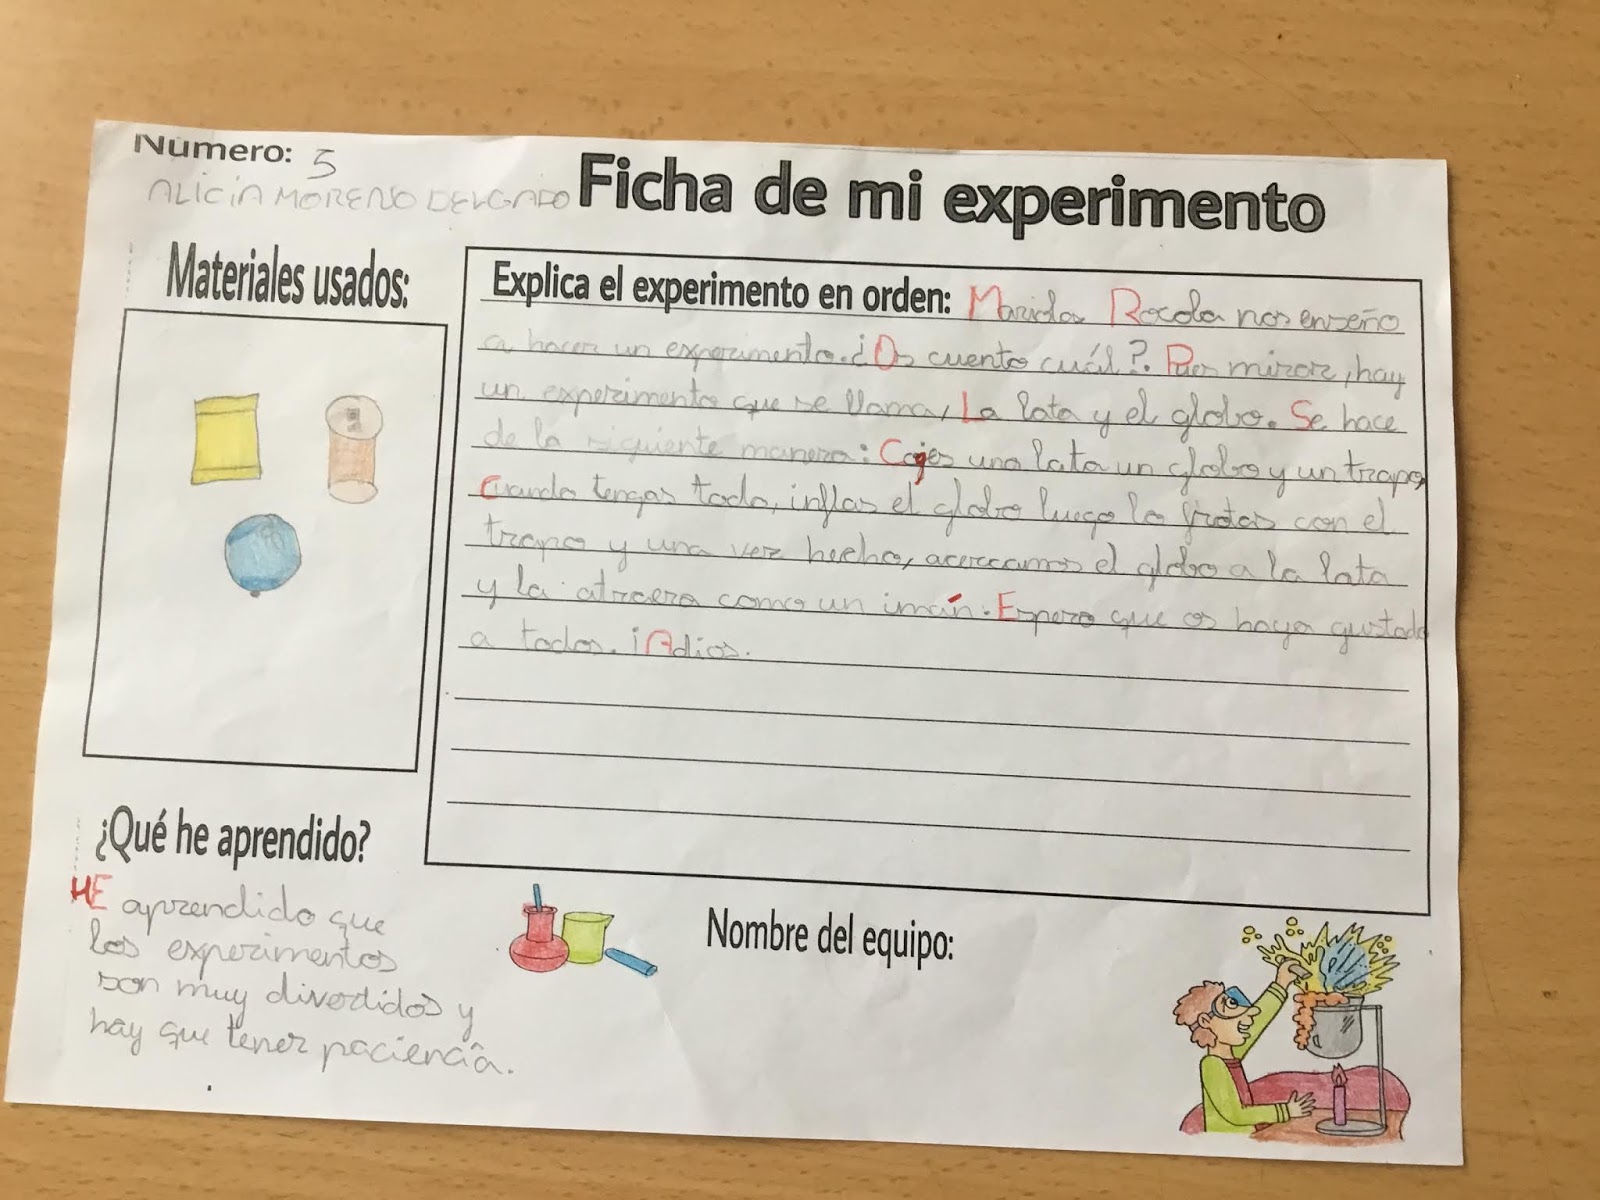 Número: 5
ALICIA MORENO DELGADO
Ficha de mi experimento
Materiales usados:
Explica el experimento en orden: Rocola nos enseño
a hacer un experimento. ¿Os cuento cuál?. Pues mirar, hay
un experimento que se llama, La lata y el globo. Se hace
de la siguiente manera: Cojes una lata un globo y un trapo,
Cuando tengas todo, inflas el globo luego lo frotas con el
trapo y una vez hecho, acercamos el globo a la lata
y la atraera como un imán. Espero que os haya gustado
a todos. ¡Adios.
¿Qué he aprendido?
HE aprendido que
los experimentos
son muy divertidos y
hay que tener paciencia.
Nombre del equipo: